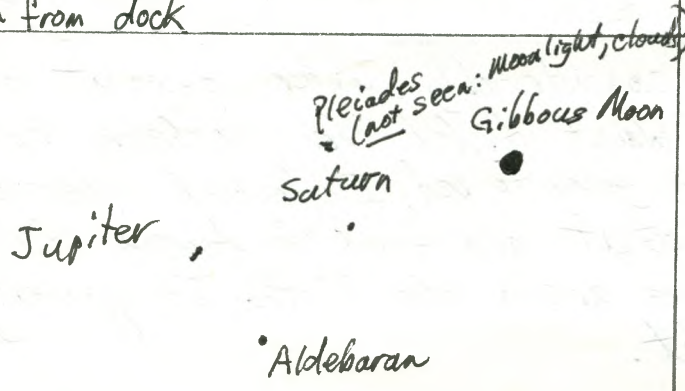 from dock
Pleiades
(not seen: moonlight, clouds)
Gibbous Moon
Saturn
Jupiter
Aldebaran